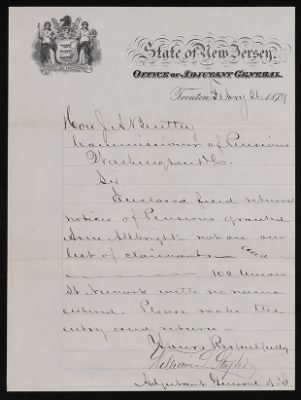 State of New Jersey.
Office of Adjutant General.
Trenton, Febry 26 1879
Hon J. A. Bentley
Commissioner of Pensions
Washington D.C.
Sir
Enclosed find return
notices of Pensions granted
Allbright not on our
list of claimants — and
— 102 Union
St Newark with no name
entered — Please make the
entry and return —
Yours Respectfully
William Stryker
Adjutant General N.J.